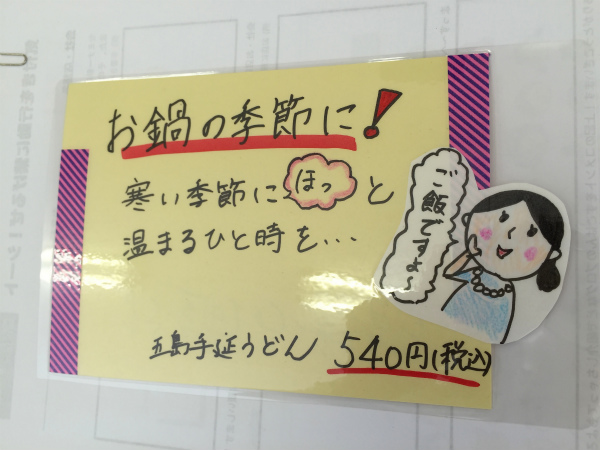 お鍋の季節に!
寒い季節にほっと
温まるひと時を…
ご飯ですよ〜
五島手延うどん 540円(税込)